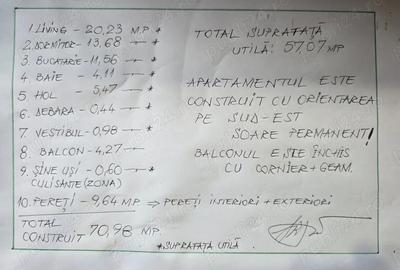 1. LIVING - 20,23 M.P *
2. DORMITOR - 13,68 —"— *
3. BUCATARIE - 11,56 —"— *
4. BAIE - 4,11 —"— *
5. HOL - 5,47 —"— *
6. DEBARA - 0,44 —"— *
7. VESTIBUL - 0,98 —"— *
8. BALCON - 4,27 —"—
9. ȘINE UȘI - 0,60 —"— *
CULISANTE (ZONA)
10. PEREȚI - 9,64 MP ⇒ PEREȚI INTERIORI + EXTERIORI
TOTAL
CONSTRUIT 70,98 MP.
* SUPRATAȚĂ UTILĂ
TOTAL SUPRATAȚĂ
UTILĂ: 57,07 MP
APARTAMENTUL ESTE
CONSTRUIT CU ORIENTAREA
PE SUD-EST
SOARE PERMANENT!
BALCONUL ESTE ÎNCHIS
CU CORNIER + GEAM.